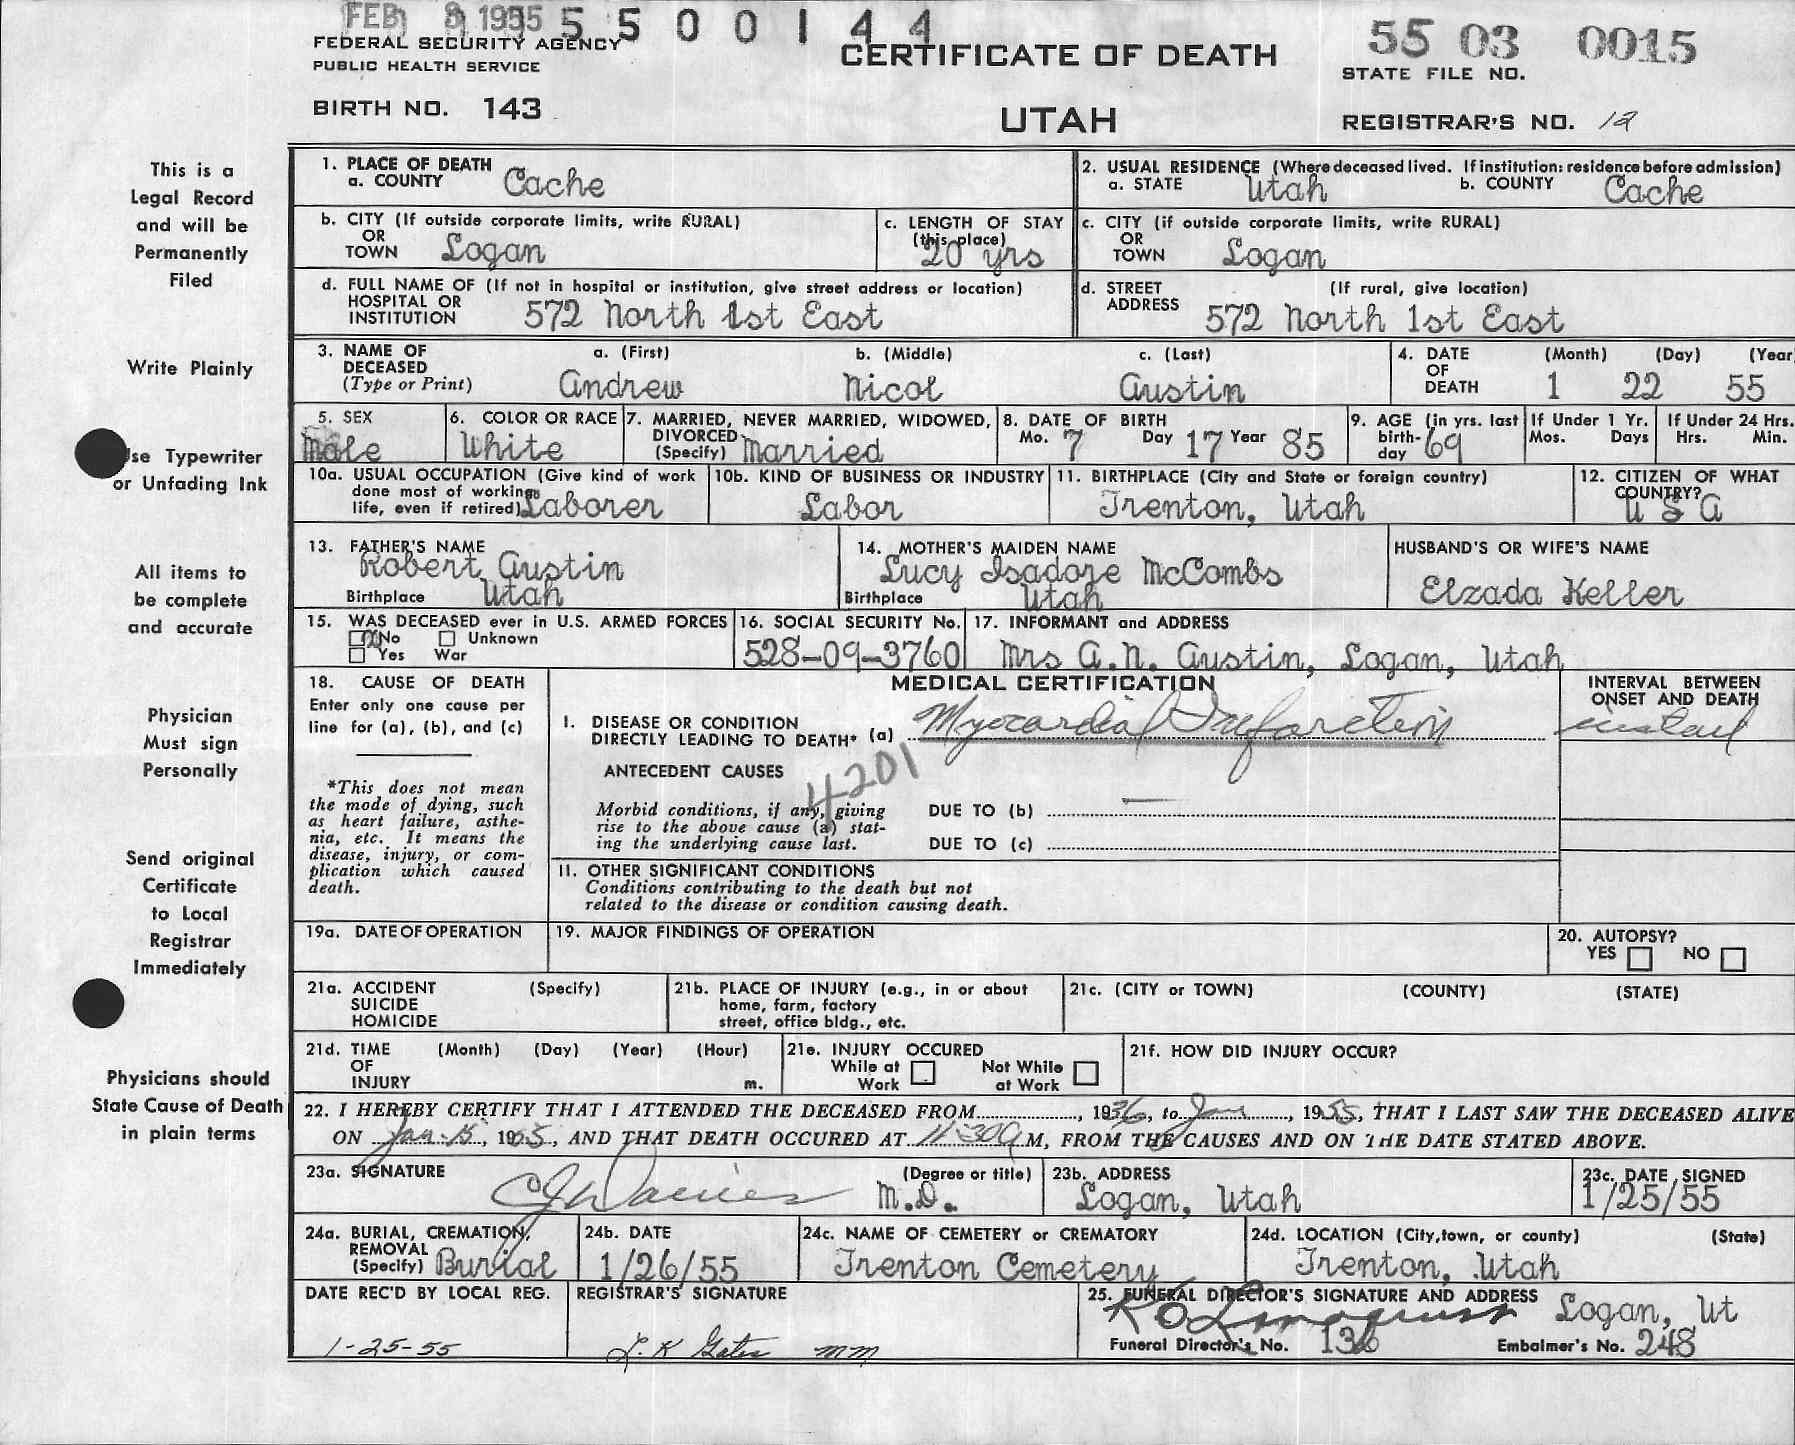 FEB 8 1955 5 5 0 0 1 4 4
FEDERAL SECURITY AGENCY
PUBLIC HEALTH SERVICE
BIRTH NO. 143
CERTIFICATE OF DEATH
UTAH
55 03 0015
STATE FILE NO.
REGISTRAR'S NO. 12
This is a
Legal Record
and will be
Permanently
Filed
Write Plainly
se Typewriter
or Unfading Ink
All items to
be complete
and accurate
Physician
Must sign
Personally
Send original
Certificate
to Local
Registrar
Immediately
Physicians should
State Cause of Death
in plain terms
1. PLACE OF DEATH
a. COUNTY Cache
2. USUAL RESIDENCE (Where deceased lived. If institution: residence before admission)
a. STATE Utah b. COUNTY Cache
b. CITY (If outside corporate limits, write RURAL)
OR
TOWN Logan
c. LENGTH OF STAY
(this place)
20 yrs
c. CITY (if outside corporate limits, write RURAL)
OR
TOWN Logan
d. FULL NAME OF (If not in hospital or institution, give street address or location)
HOSPITAL OR
INSTITUTION 572 North 1st East
d. STREET (If rural, give location)
ADDRESS 572 North 1st East
3. NAME OF
DECEASED
(Type or Print)
a. (First) b. (Middle) c. (Last)
Andrew Nicol Austin
4. DATE
OF
DEATH
(Month) (Day) (Year
1 22 55
5. SEX
Male
6. COLOR OR RACE
White
7. MARRIED, NEVER MARRIED, WIDOWED,
DIVORCED
(Specify) Married
8. DATE OF BIRTH
Mo. 7 Day 17 Year 85
9. AGE (in yrs. last
birth-
day 69
If Under 1 Yr.
Mos. Days
If Under 24 Hrs.
Hrs. Min.
10a. USUAL OCCUPATION (Give kind of work
done most of working
life, even if retired) Laborer
10b. KIND OF BUSINESS OR INDUSTRY
Labor
11. BIRTHPLACE (City and State or foreign country)
Trenton, Utah
12. CITIZEN OF WHAT
COUNTRY?
U S A
13. FATHER'S NAME
Robert Austin
Birthplace Utah
14. MOTHER'S MAIDEN NAME
Lucy Isadore McCombs
Birthplace Utah
HUSBAND'S OR WIFE'S NAME
Elzada Keller
15. WAS DECEASED ever in U.S. ARMED FORCES
No Unknown
Yes War
16. SOCIAL SECURITY No.
528-09-3760
17. INFORMANT and ADDRESS
Mrs A.N. Austin, Logan, Utah
18. CAUSE OF DEATH
Enter only one cause per
line for (a), (b), and (c)
*This does not mean
the mode of dying, such
as heart failure, asthe-
nia, etc. It means the
disease, injury, or com-
plication which caused
death.
MEDICAL CERTIFICATION
I. DISEASE OR CONDITION
DIRECTLY LEADING TO DEATH* (a) Myocardial Infarction
INTERVAL BETWEEN
ONSET AND DEATH
ANTECEDENT CAUSES
4201
Morbid conditions, if any, giving
rise to the above cause (a) stat-
ing the underlying cause last.
DUE TO (b)
DUE TO (c)
II. OTHER SIGNIFICANT CONDITIONS
Conditions contributing to the death but not
related to the disease or condition causing death.
19a. DATE OF OPERATION
19. MAJOR FINDINGS OF OPERATION
20. AUTOPSY?
YES NO
21a. ACCIDENT (Specify)
SUICIDE
HOMICIDE
21b. PLACE OF INJURY (e.g., in or about
home, farm, factory
street, office bldg., etc.
21c. (CITY or TOWN) (COUNTY) (STATE)
21d. TIME (Month) (Day) (Year) (Hour)
OF
INJURY m.
21e. INJURY OCCURED
While at Not While
Work at Work
21f. HOW DID INJURY OCCUR?
22. I HEREBY CERTIFY THAT I ATTENDED THE DECEASED FROM , 1936, to Jan , 1955, THAT I LAST SAW THE DECEASED ALIVE
ON Jan. 15, 1955, AND THAT DEATH OCCURED AT 11:30 A M, FROM THE CAUSES AND ON THE DATE STATED ABOVE.
23a. SIGNATURE (Degree or title)
CJ Daines M.D.
23b. ADDRESS
Logan, Utah
23c. DATE SIGNED
1/25/55
24a. BURIAL, CREMATION,
REMOVAL
(Specify) Burial
24b. DATE
1/26/55
24c. NAME OF CEMETERY or CREMATORY
Trenton Cemetery
24d. LOCATION (City, town, or county) (State)
Trenton, Utah
DATE REC'D BY LOCAL REG.
1-25-55
REGISTRAR'S SIGNATURE
L. K Gates mm
25. FUNERAL DIRECTOR'S SIGNATURE AND ADDRESS
Logan, Ut
Funeral Director's No. 136 Embalmer's No. 248